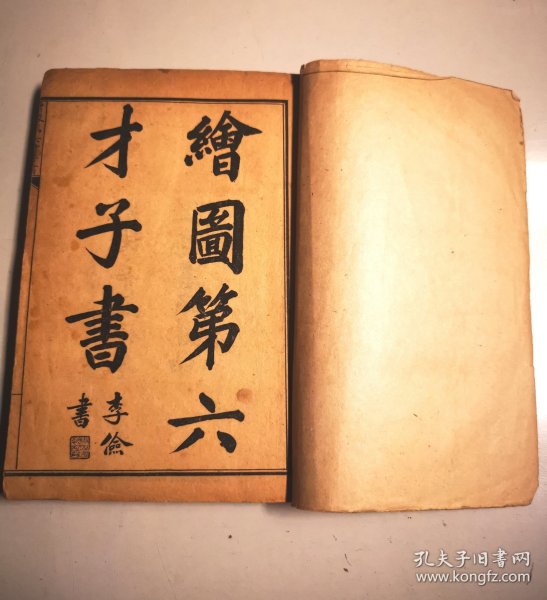 繪圖第六
才子書
李儉
書
孔夫子旧书网
www.kongfz.com